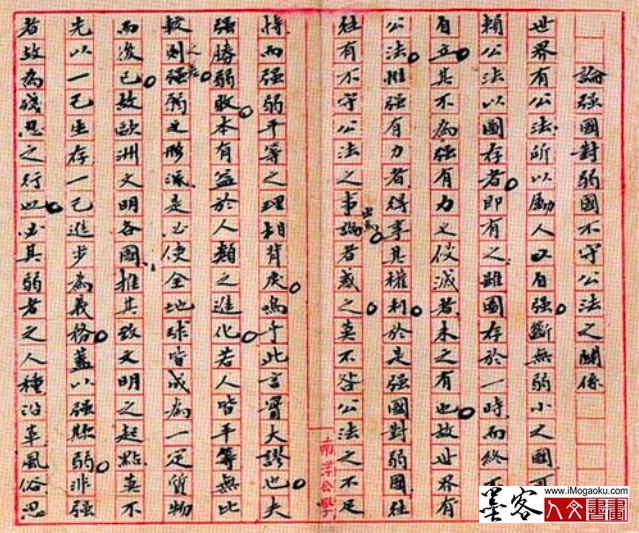 論强國對弱國不守公法之關係
世界有公法所以勵人以自强斷無弱小之國可
賴公法以圖存者即有之雖圖存於一時而終不
自立其不為强有力之侵滅者未之有也故世界有
公法惟强有力者得享其權利於是强國對弱國往
往有不守公法之事出焉論者惑之莫不咎公法之不足
恃而强弱平等之理相背戾嗚乎此言實大謬也夫
强勝弱敗本有益於人類之進化若人皆平等無比
較之差則强弱之形泯是必使全地球皆成為一定質物
而後已故歐洲文明各國推其致文明之起點莫不
先以一己生存一己進步為義務蓋以强欺弱非强
者故為殘忍之行也必其弱者之人種沿革風俗思
南洋公學
墨客
www.iMogaoku.com
人文書畫